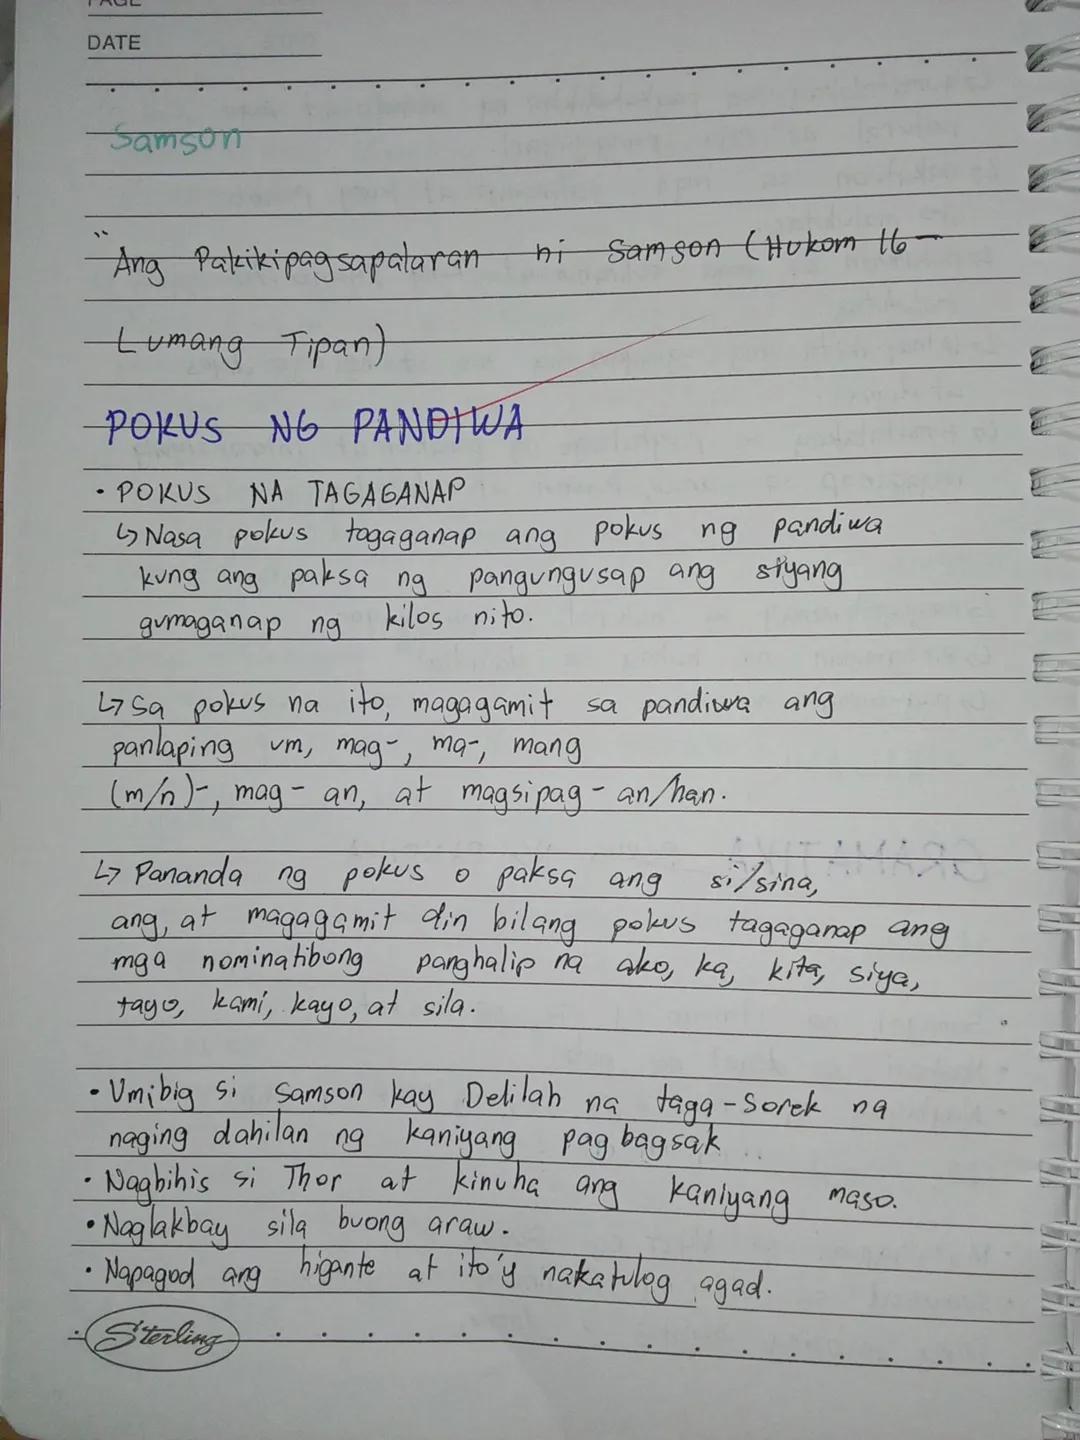 PAGE
DATE
Samson
"Ang Pakikipagsapalaran ni Samson (Hukom 16-
Lumang Tipan)
POKUS NG PANDIWA
• POKUS NA TAGAGANAP
↳ Nasa pokus tagaganap ang pokus ng pandiwa
kung ang paksa ng pangungusap ang siyang
gumaganap ng kilos nito.
↳ Sa pokus na ito, magagamit sa pandiwa ang
panlaping um, mag-, ma-, mang
(m/n)-, mag - an, at magsipag - an/han.
↳ Pananda ng pokus o paksa ang si/sina,
ang, at magagamit din bilang pokus tagaganap ang
mga nominatibong panghalip na ako, ka, kita, siya,
tayo, kami, kayo, at sila.
• Umibig si Samson kay Delilah na taga-Sorek na
naging dahilan ng kaniyang pagbagsak
• Nagbihis si Thor at kinuha ang kaniyang maso.
• Naglakbay sila buong araw.
• Napagod ang higante at ito'y nakatulog agad.
Sterling